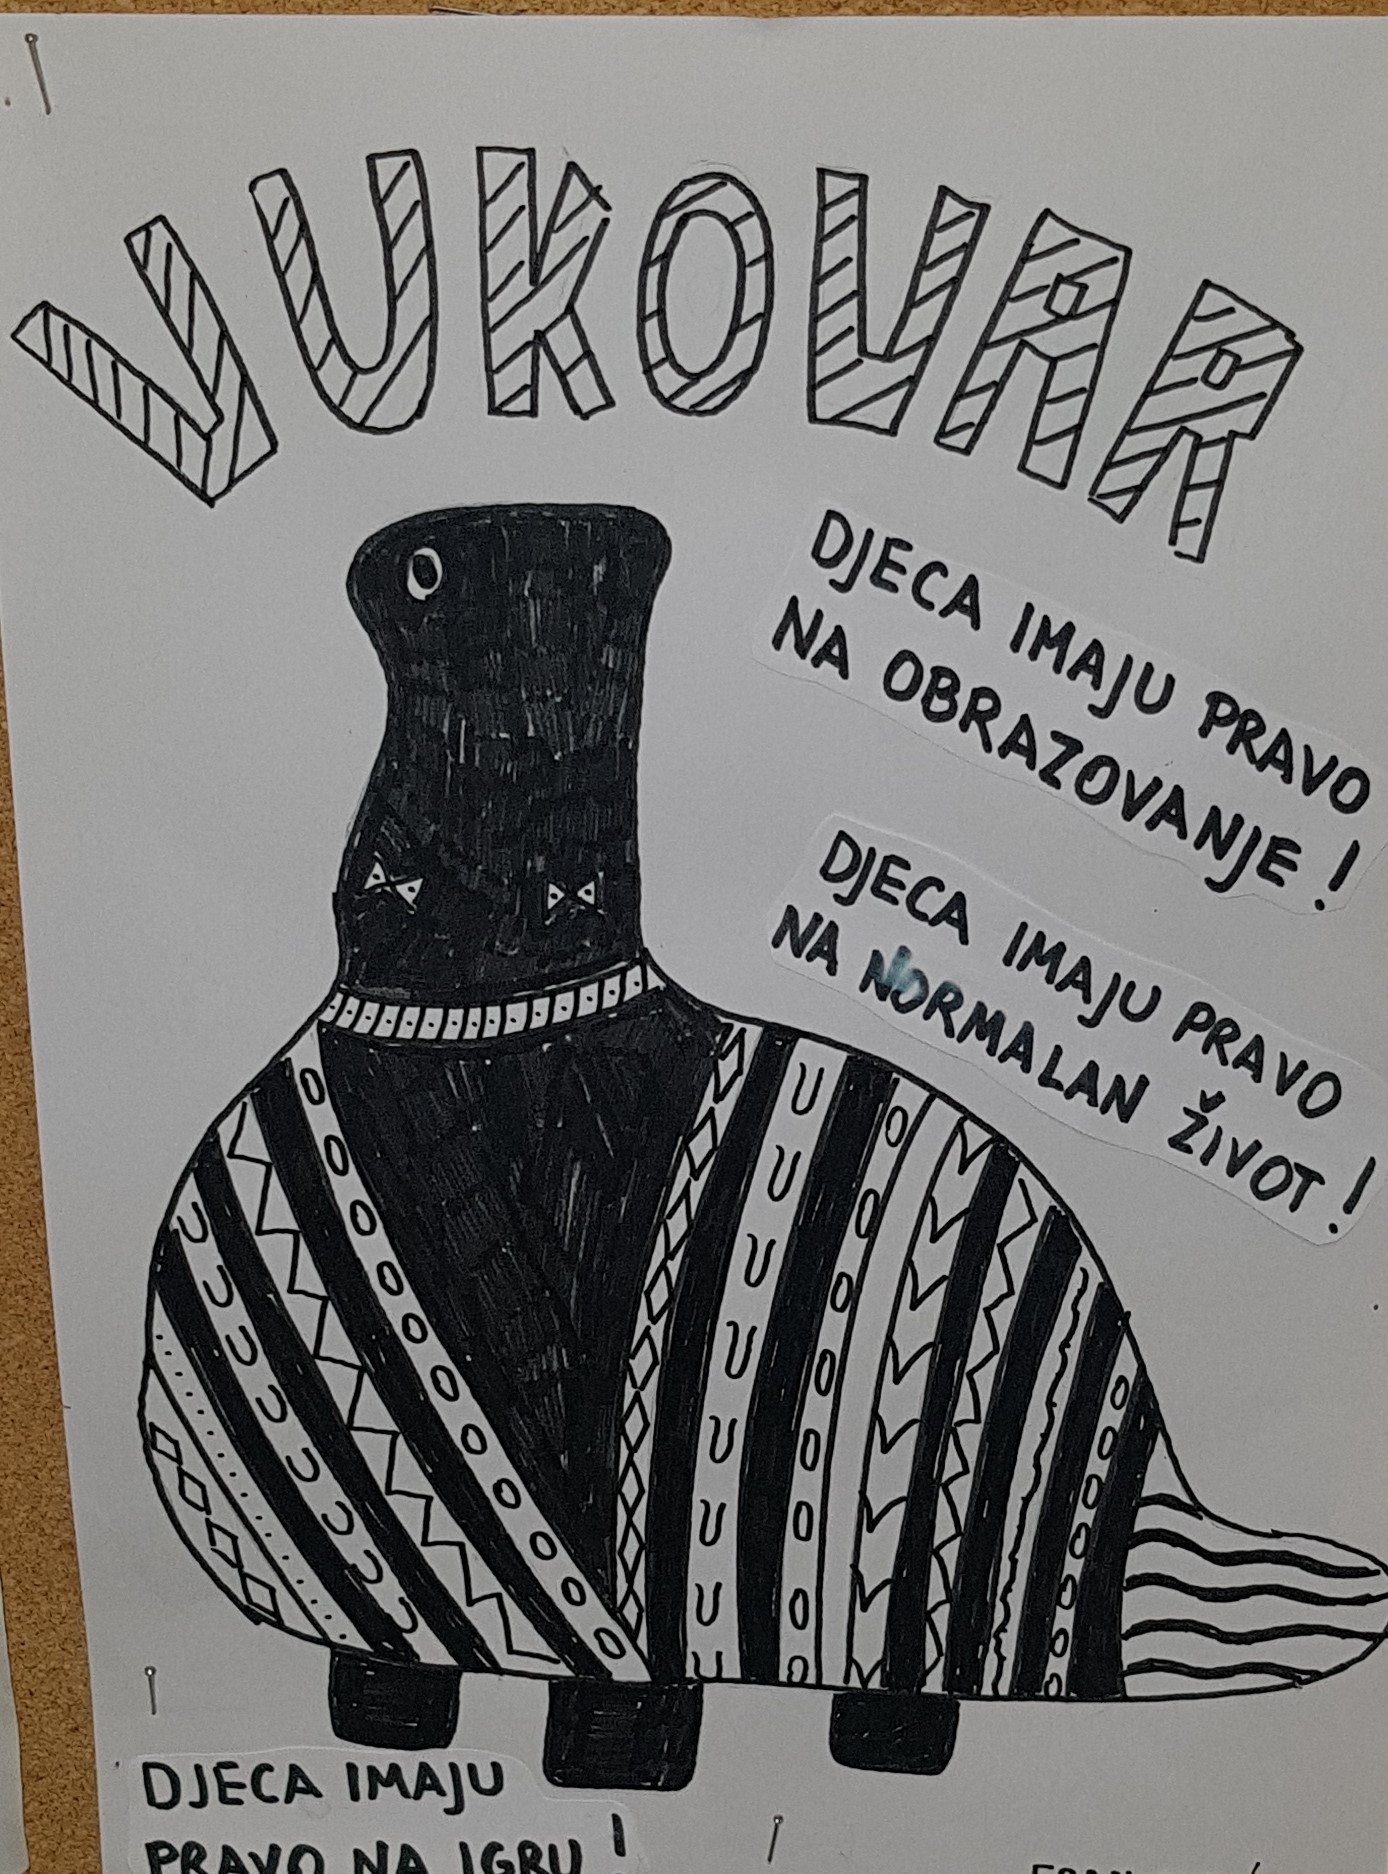 VUKOVAR
DJECA IMAJU PRAVO
NA OBRAZOVANJE !
DJECA IMAJU PRAVO
NA NORMALAN ŽIVOT !
DJECA IMAJU
PRAVO NA IGRU !